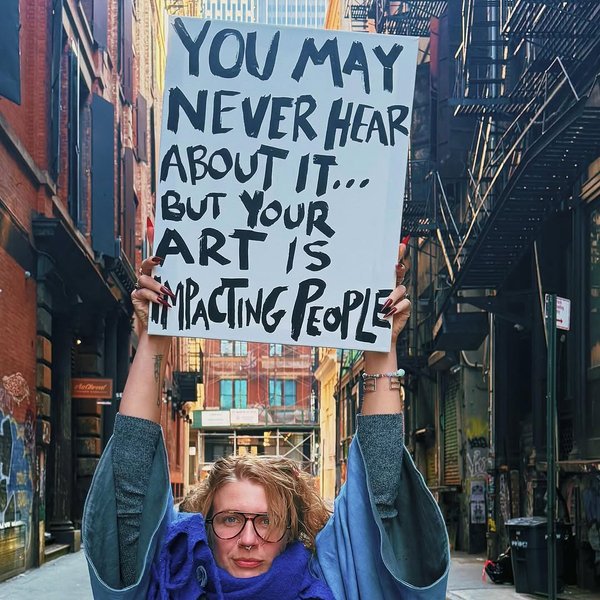 YOU MAY
NEVER HEAR
ABOUT IT...
BUT YOUR
ART IS
IMPACTING PEOPLE